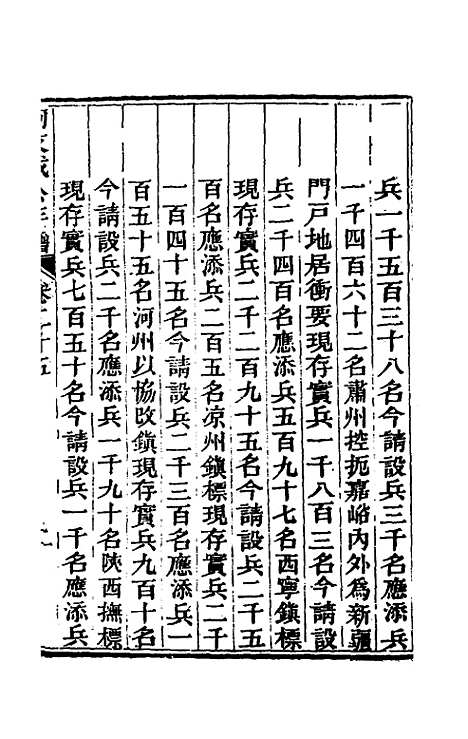 兵一千五百三十八名今請設兵三千名應添兵
一千四百六十二名肅州控扼嘉峪內外為新疆
門戶地居衝要現存實兵一千八百三名今請設
兵二千四百名應添兵五百九十七名西寧鎮標
現存實兵二千二百九十五名今請設兵二千五
百名應添兵二百五名凉州鎮標現存實兵二千
一百四十五名今請設兵二千三百名應添兵一
百五十五名河州以協改鎮現存實兵九百十名
今請設兵二千名應添兵一千九十名陝西撫標
現存實兵七百五十名今請設兵一千名應添兵
文成公年譜